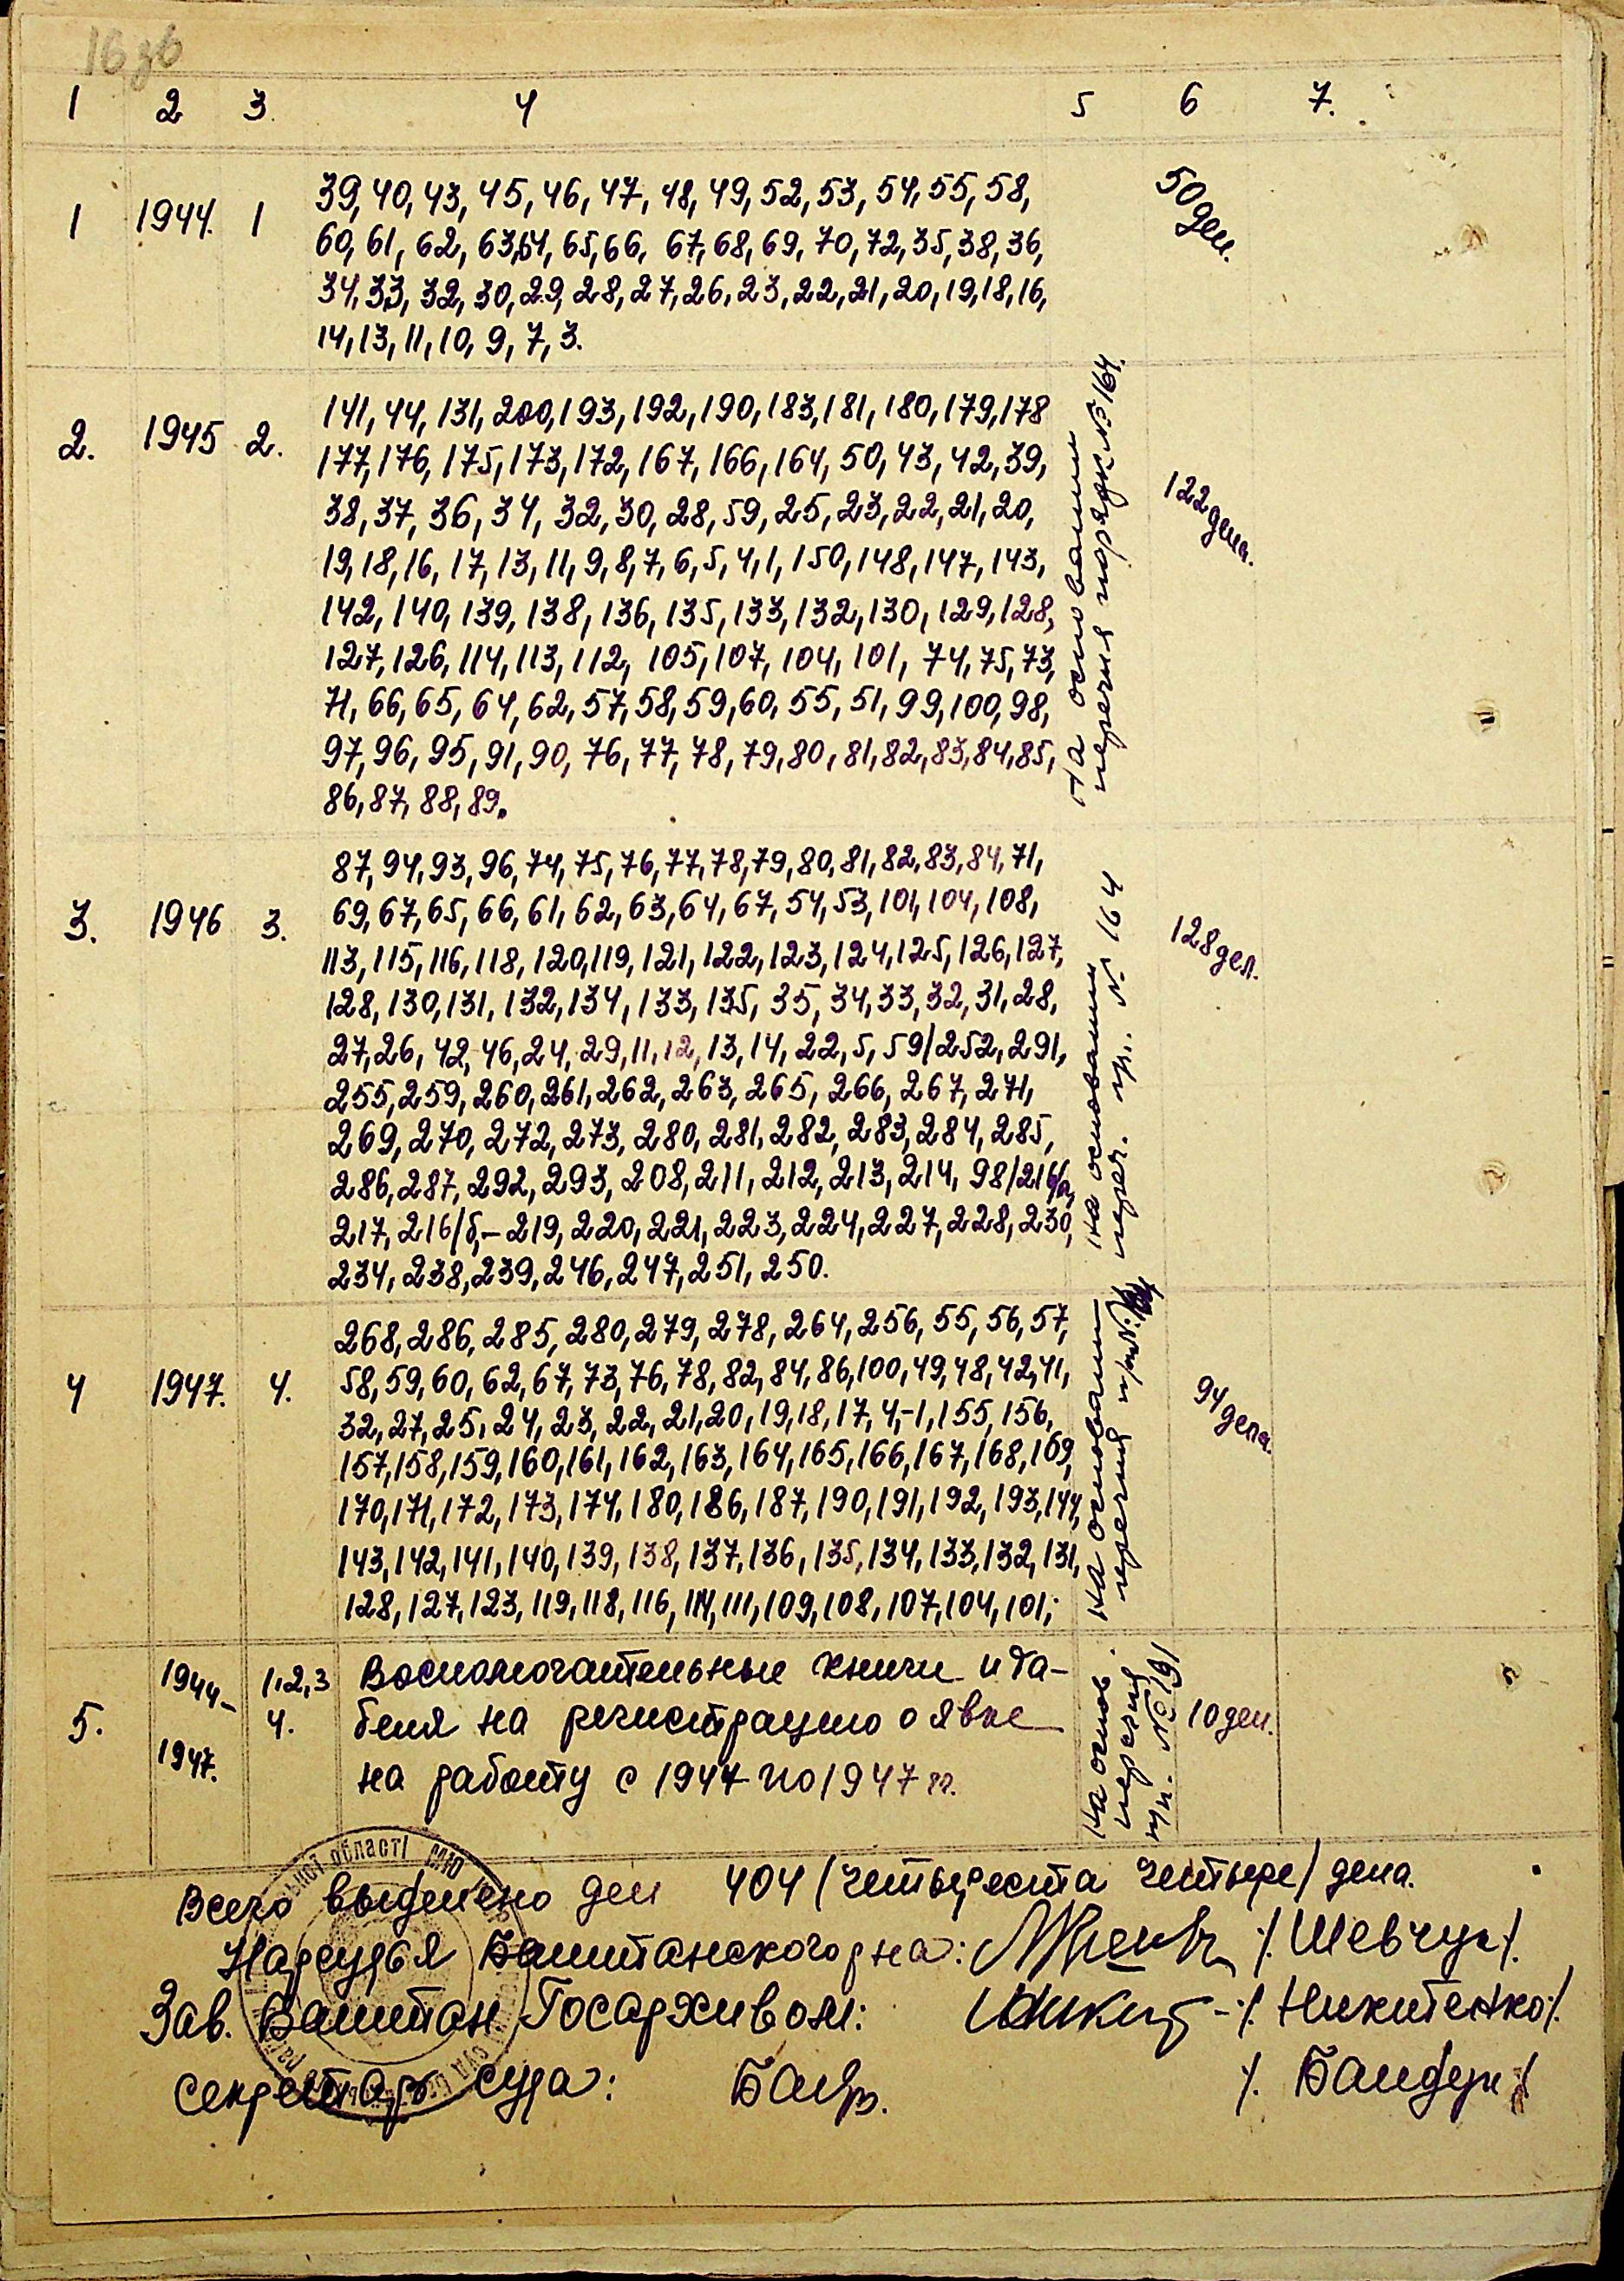 16зв
1 2 3. 4 5 6 7.
1 1944. 1
39, 40, 43, 45, 46, 47, 48, 49, 52, 53, 54, 55, 58,
60, 61, 62, 63, 64, 65, 66, 67, 68, 69, 70, 72, 35, 38, 36,
34, 33, 32, 30, 29, 28, 27, 26, 23, 22, 21, 20, 19, 18, 16,
14, 13, 11, 10, 9, 7, 3.
50 дел.
2. 1945 2.
141, 44, 131, 200, 193, 192, 190, 183, 181, 180, 179, 178
177, 176, 175, 173, 172, 167, 166, 164, 50, 43, 42, 39,
38, 37, 36, 34, 32, 30, 28, 59, 25, 23, 22, 21, 20,
19, 18, 16, 17, 13, 11, 9, 8, 7, 6, 5, 4, 1, 150, 148, 147, 143,
142, 140, 139, 138, 136, 135, 133, 132, 130, 129, 128,
127, 126, 114, 113, 112, 105, 107, 104, 101, 74, 75, 73,
71, 66, 65, 64, 62, 57, 58, 59, 60, 55, 51, 99, 100, 98,
97, 96, 95, 91, 90, 76, 77, 78, 79, 80, 81, 82, 83, 84, 85,
86, 87, 88, 89.
На основании
перечня порядк. № 164.
122 дела.
3. 1946 3.
87, 94, 93, 96, 74, 75, 76, 77, 78, 79, 80, 81, 82, 83, 84, 71,
69, 67, 65, 66, 61, 62, 63, 64, 67, 54, 53, 101, 104, 108,
113, 115, 116, 118, 120, 119, 121, 122, 123, 124, 125, 126, 127,
128, 130, 131, 132, 134, 133, 135, 35, 34, 33, 32, 31, 28,
27, 26, 42, 46, 24, 29, 11, 12, 13, 14, 22, 5, 59/252, 291,
255, 259, 260, 261, 262, 263, 265, 266, 267, 271,
269, 270, 272, 273, 280, 281, 282, 283, 284, 285,
286, 287, 292, 293, 208, 211, 212, 213, 214, 98/216/а,
217, 216/б, - 219, 220, 221, 223, 224, 227, 228, 230,
234, 238, 239, 246, 247, 251, 250.
на основании
переч. № 164
128 дел.
4 1947. 4.
268, 286, 285, 280, 279, 278, 264, 256, 55, 56, 57,
58, 59, 60, 62, 67, 73, 76, 78, 82, 84, 86, 100, 49, 48, 42, 41,
32, 27, 25, 24, 23, 22, 21, 20, 19, 18, 17, 4, -1, 155, 156,
157, 158, 159, 160, 161, 162, 163, 164, 165, 166, 167, 168, 169,
170, 171, 172, 173, 174, 180, 186, 187, 190, 191, 192, 193, 144,
143, 142, 141, 140, 139, 138, 137, 136, 135, 134, 133, 132, 131,
128, 127, 123, 119, 118, 116, 114, 111, 109, 108, 107, 104, 101;
На основании
перечня
94 дела.
5. 1944- 1947. 1,2,3 4.
Воспомогательные книги и та-
беля на регистрацию о явке
на работу с 1944 по 1947 гг.
На основ.
перечня
п/п. № 191
10 дел.
Всего выделено дел 404 /четыреста четыре/ дела.
Нарсудья Баштанского р на: /. Шевчук /.
Зав. Баштан. Госархивом: -/. Никитенко /.
секретарь суда: /. Бандур /
області